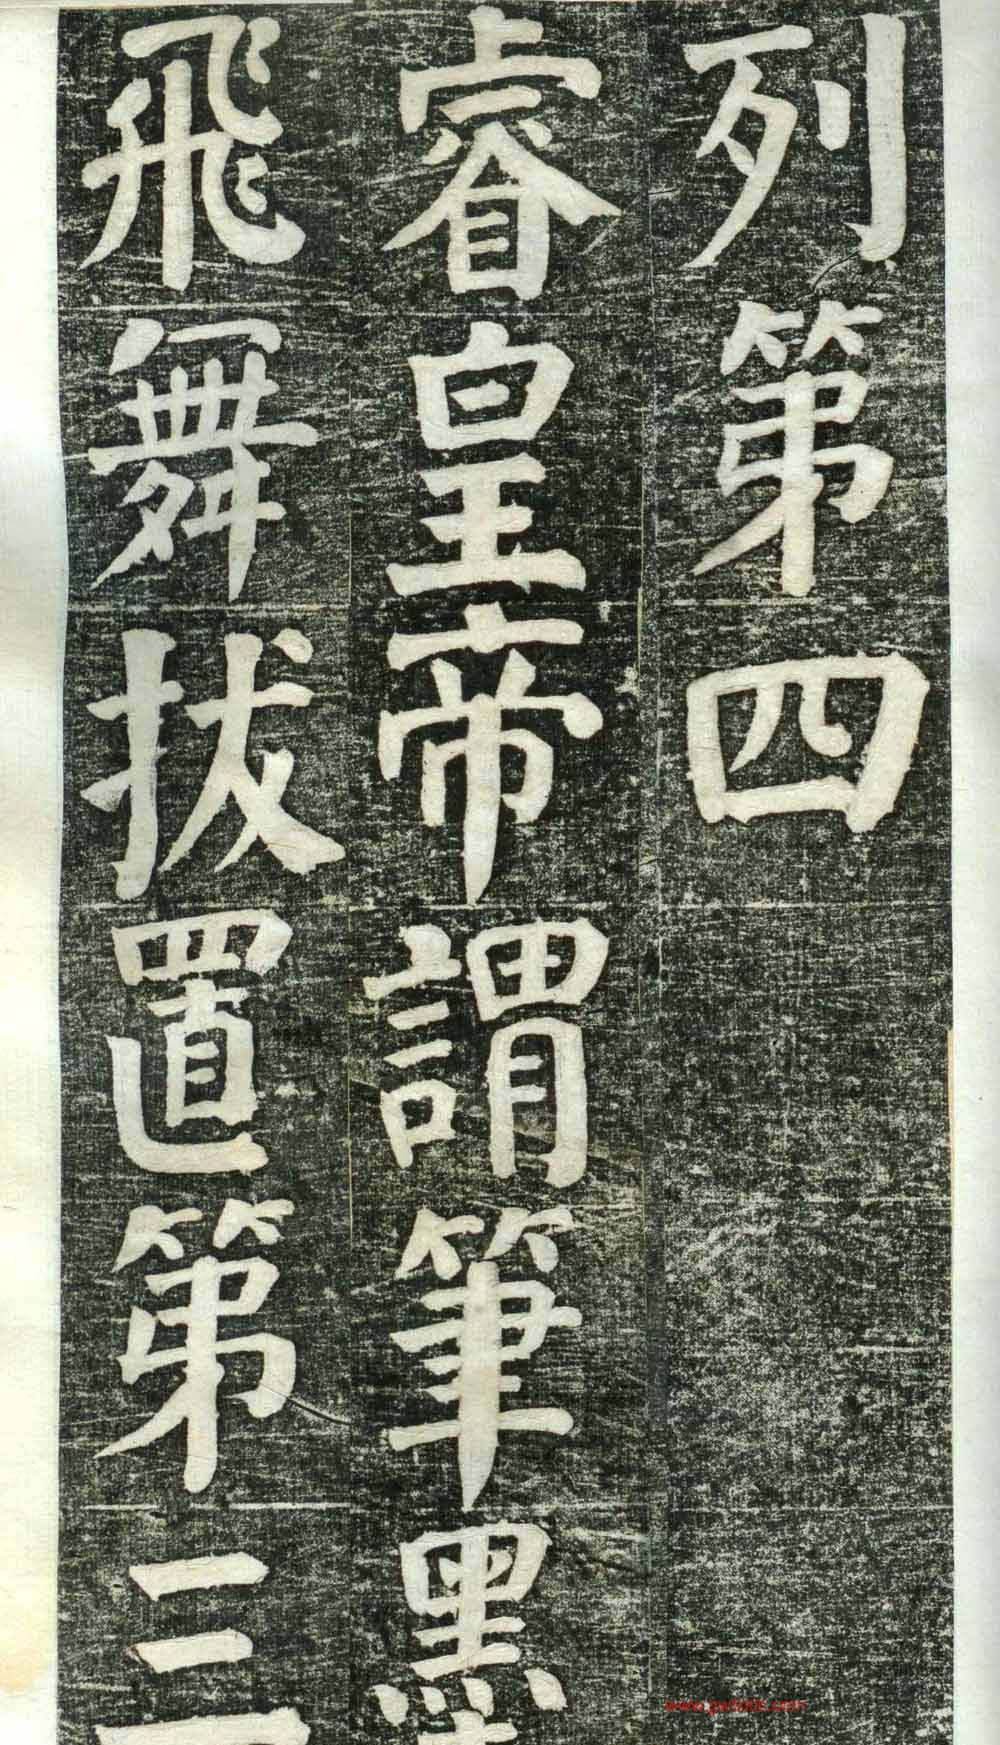 列第四
睿皇帝謂筆墨
飛舞拔置第三
www.gwf000.com